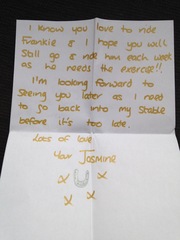 I know you love to ride
Frankie & I hope you will
Still go & ride him each week
as he needs the exercise!!.
I'm looking forward to
Seeing you later as I need
to go back into my Stable
before it's too late.
Lots of love
Your Jasmine
x x
x x